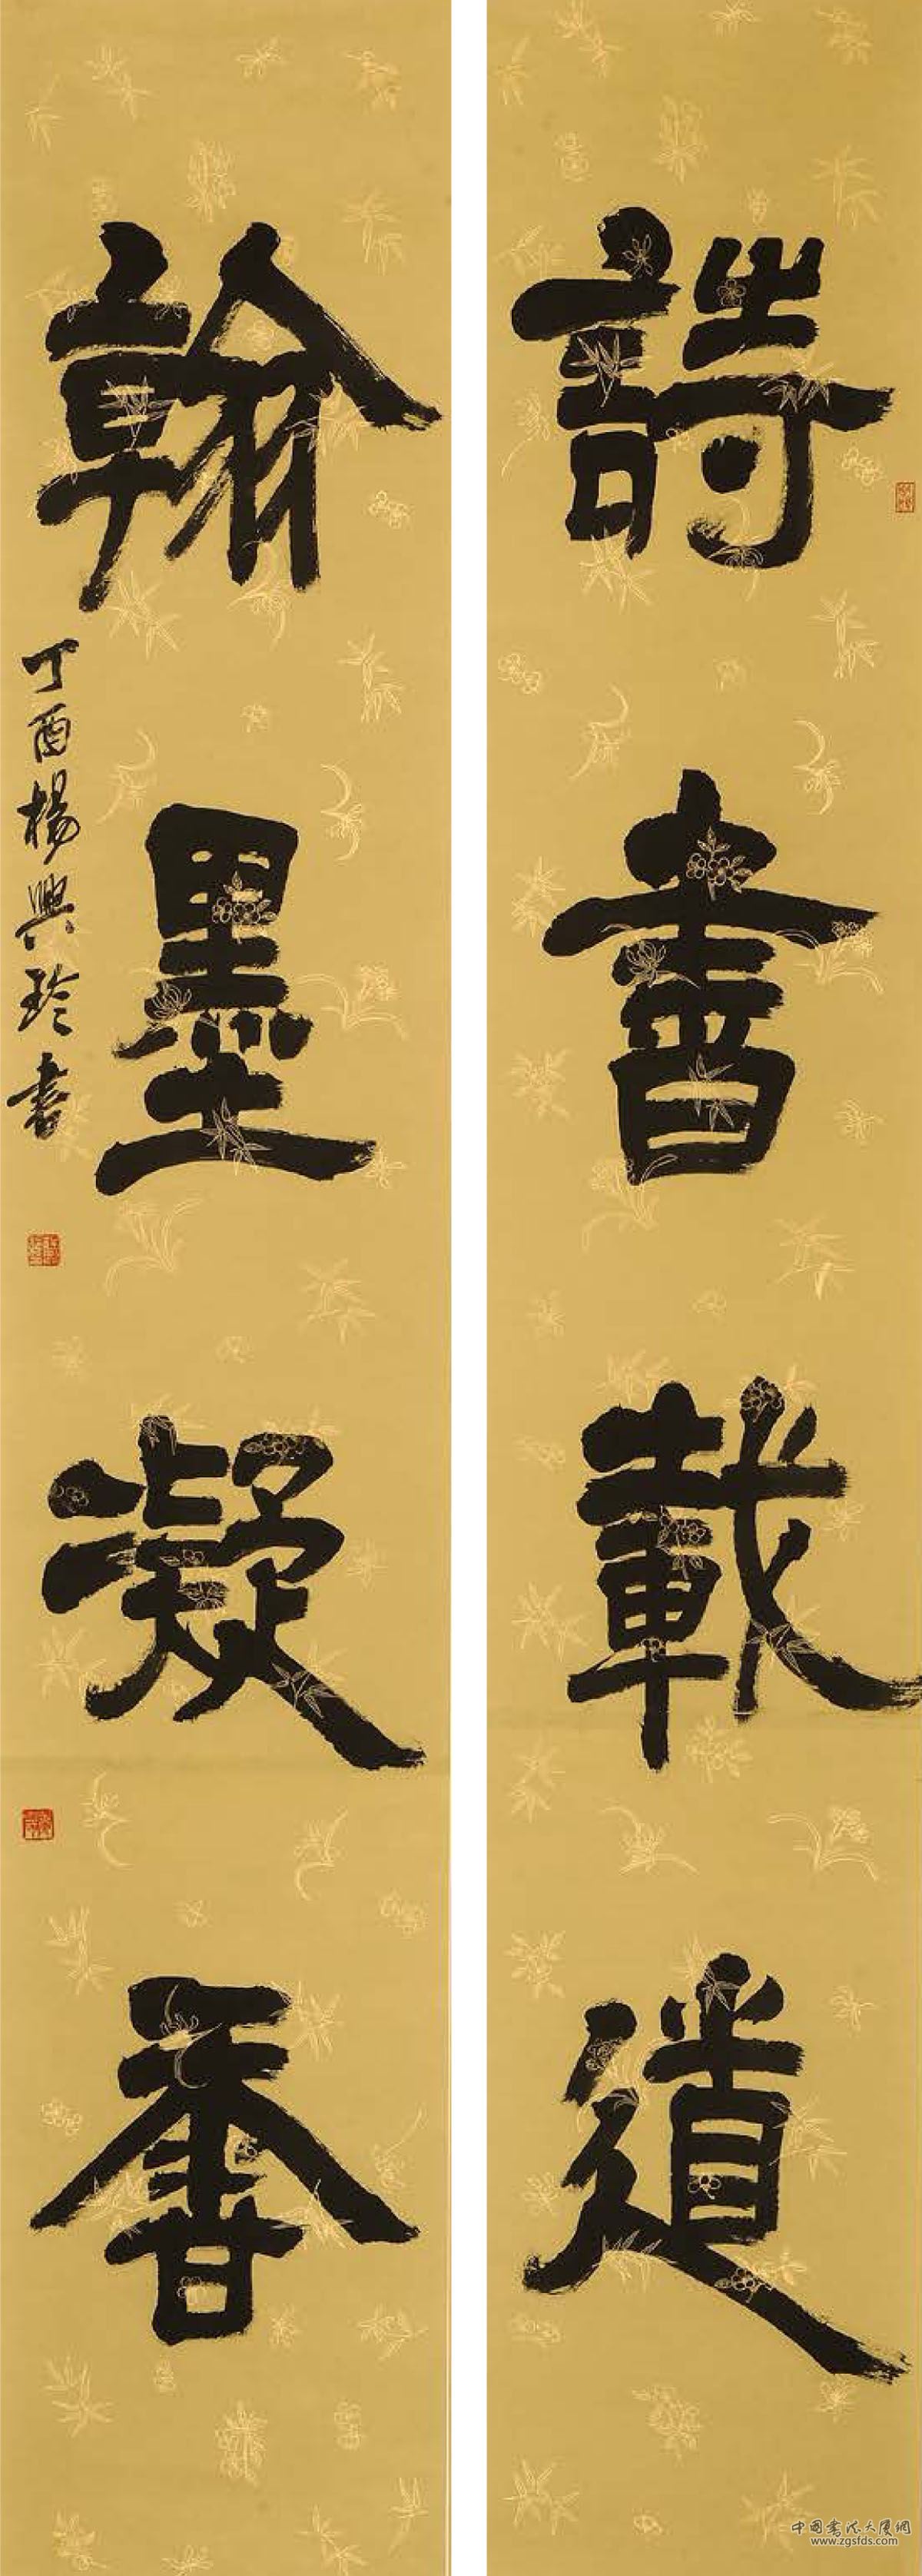 詩書載道
翰墨凝香
丁酉楊興玲書
中国书法大厦网
www.zgsfds.com